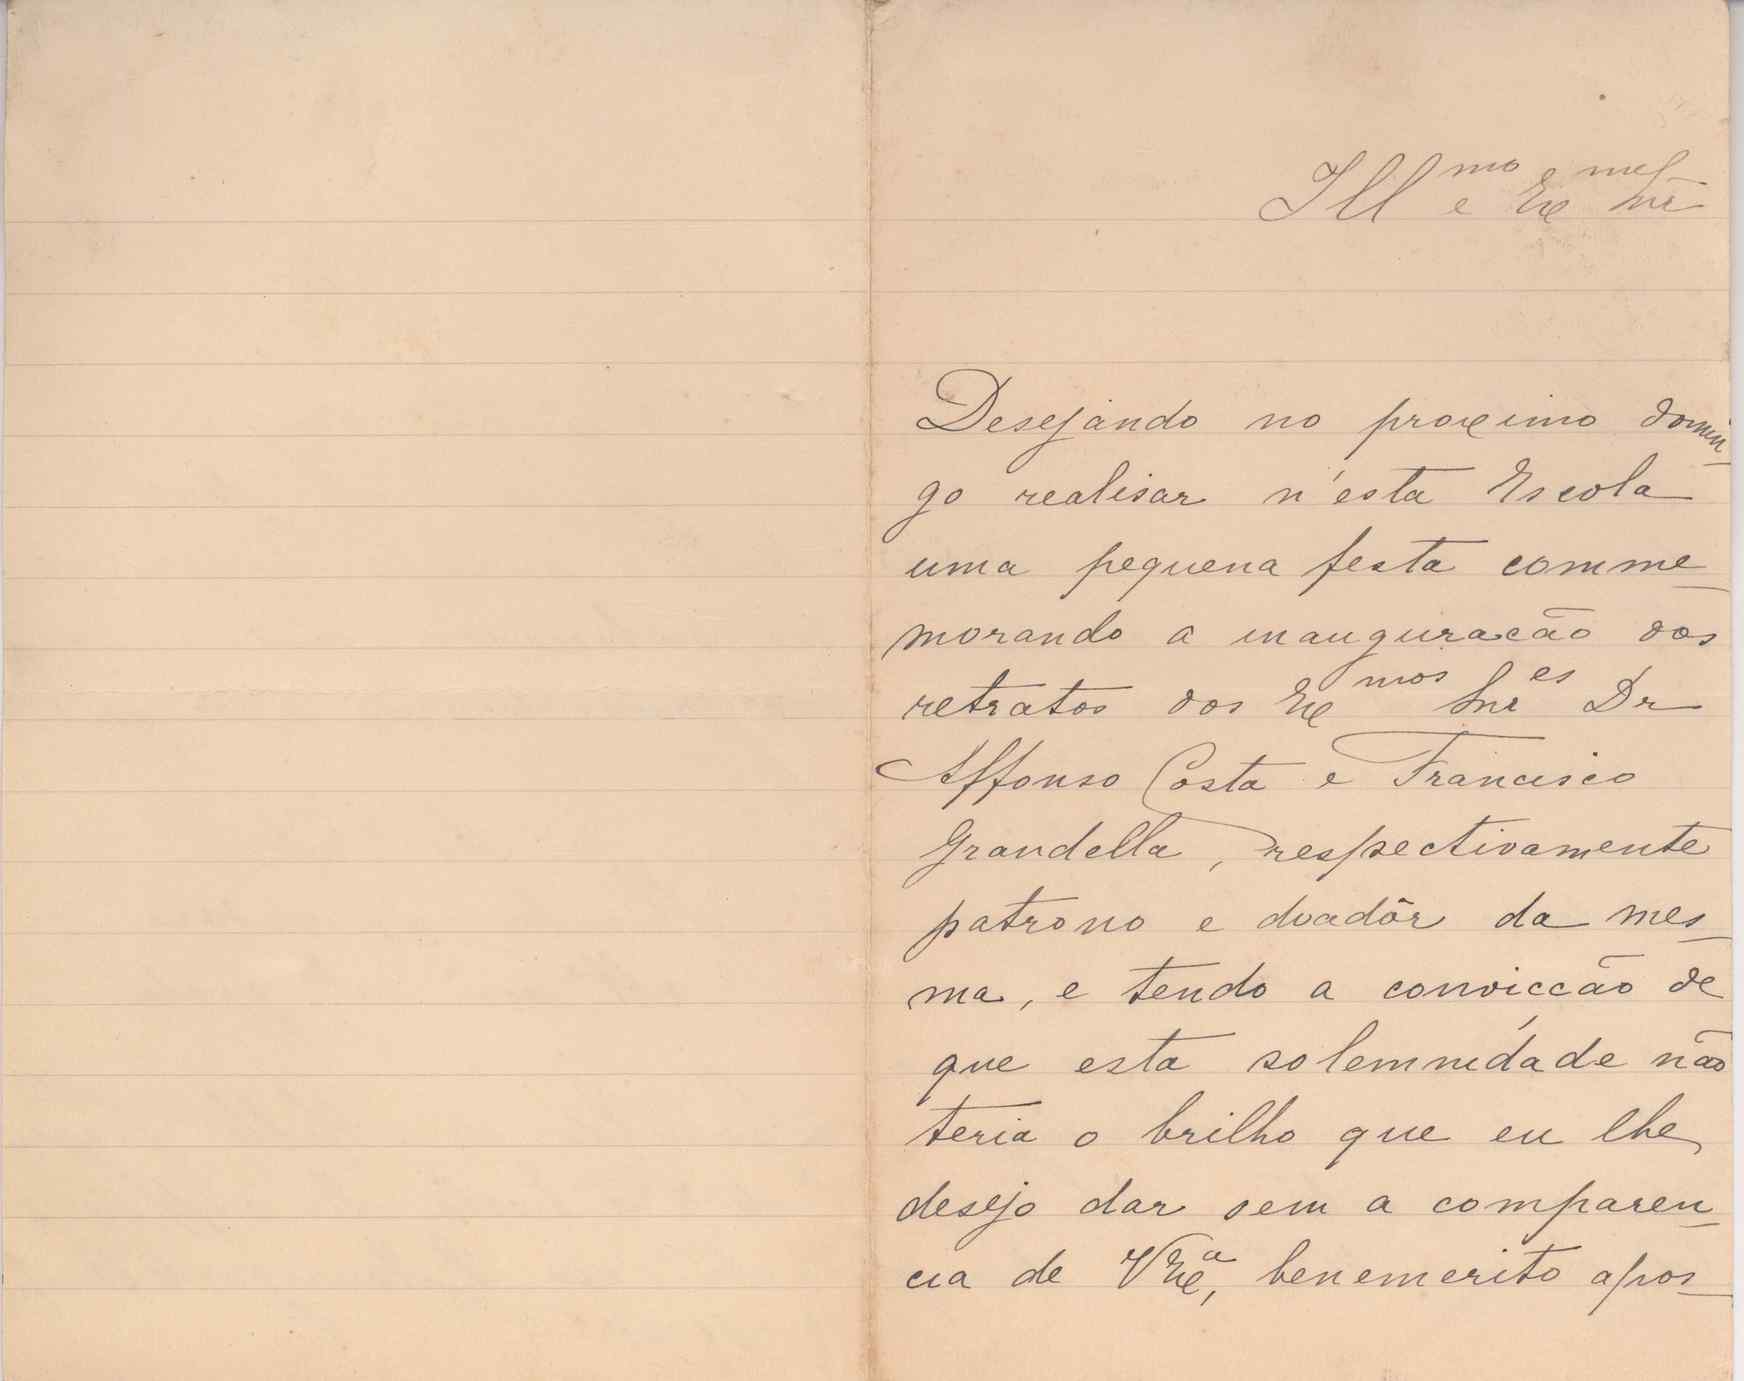 Ill^mo e Ex^mo Snr
Desejando no proximo domin-
go realisar n'esta Escola
uma pequena festa comme-
morando a inauguracão dos
retratos dos Ex^mos Snr^es Dr
Affonso Costa e Francisco
Grandella, respectivamente
patrono e doadôr da mes-
ma, e tendo a convicção de
que esta solemnidade não
teria o brilho que eu lhe
desejo dar sem a comparen-
cia de VEx^a, benemerito apos-